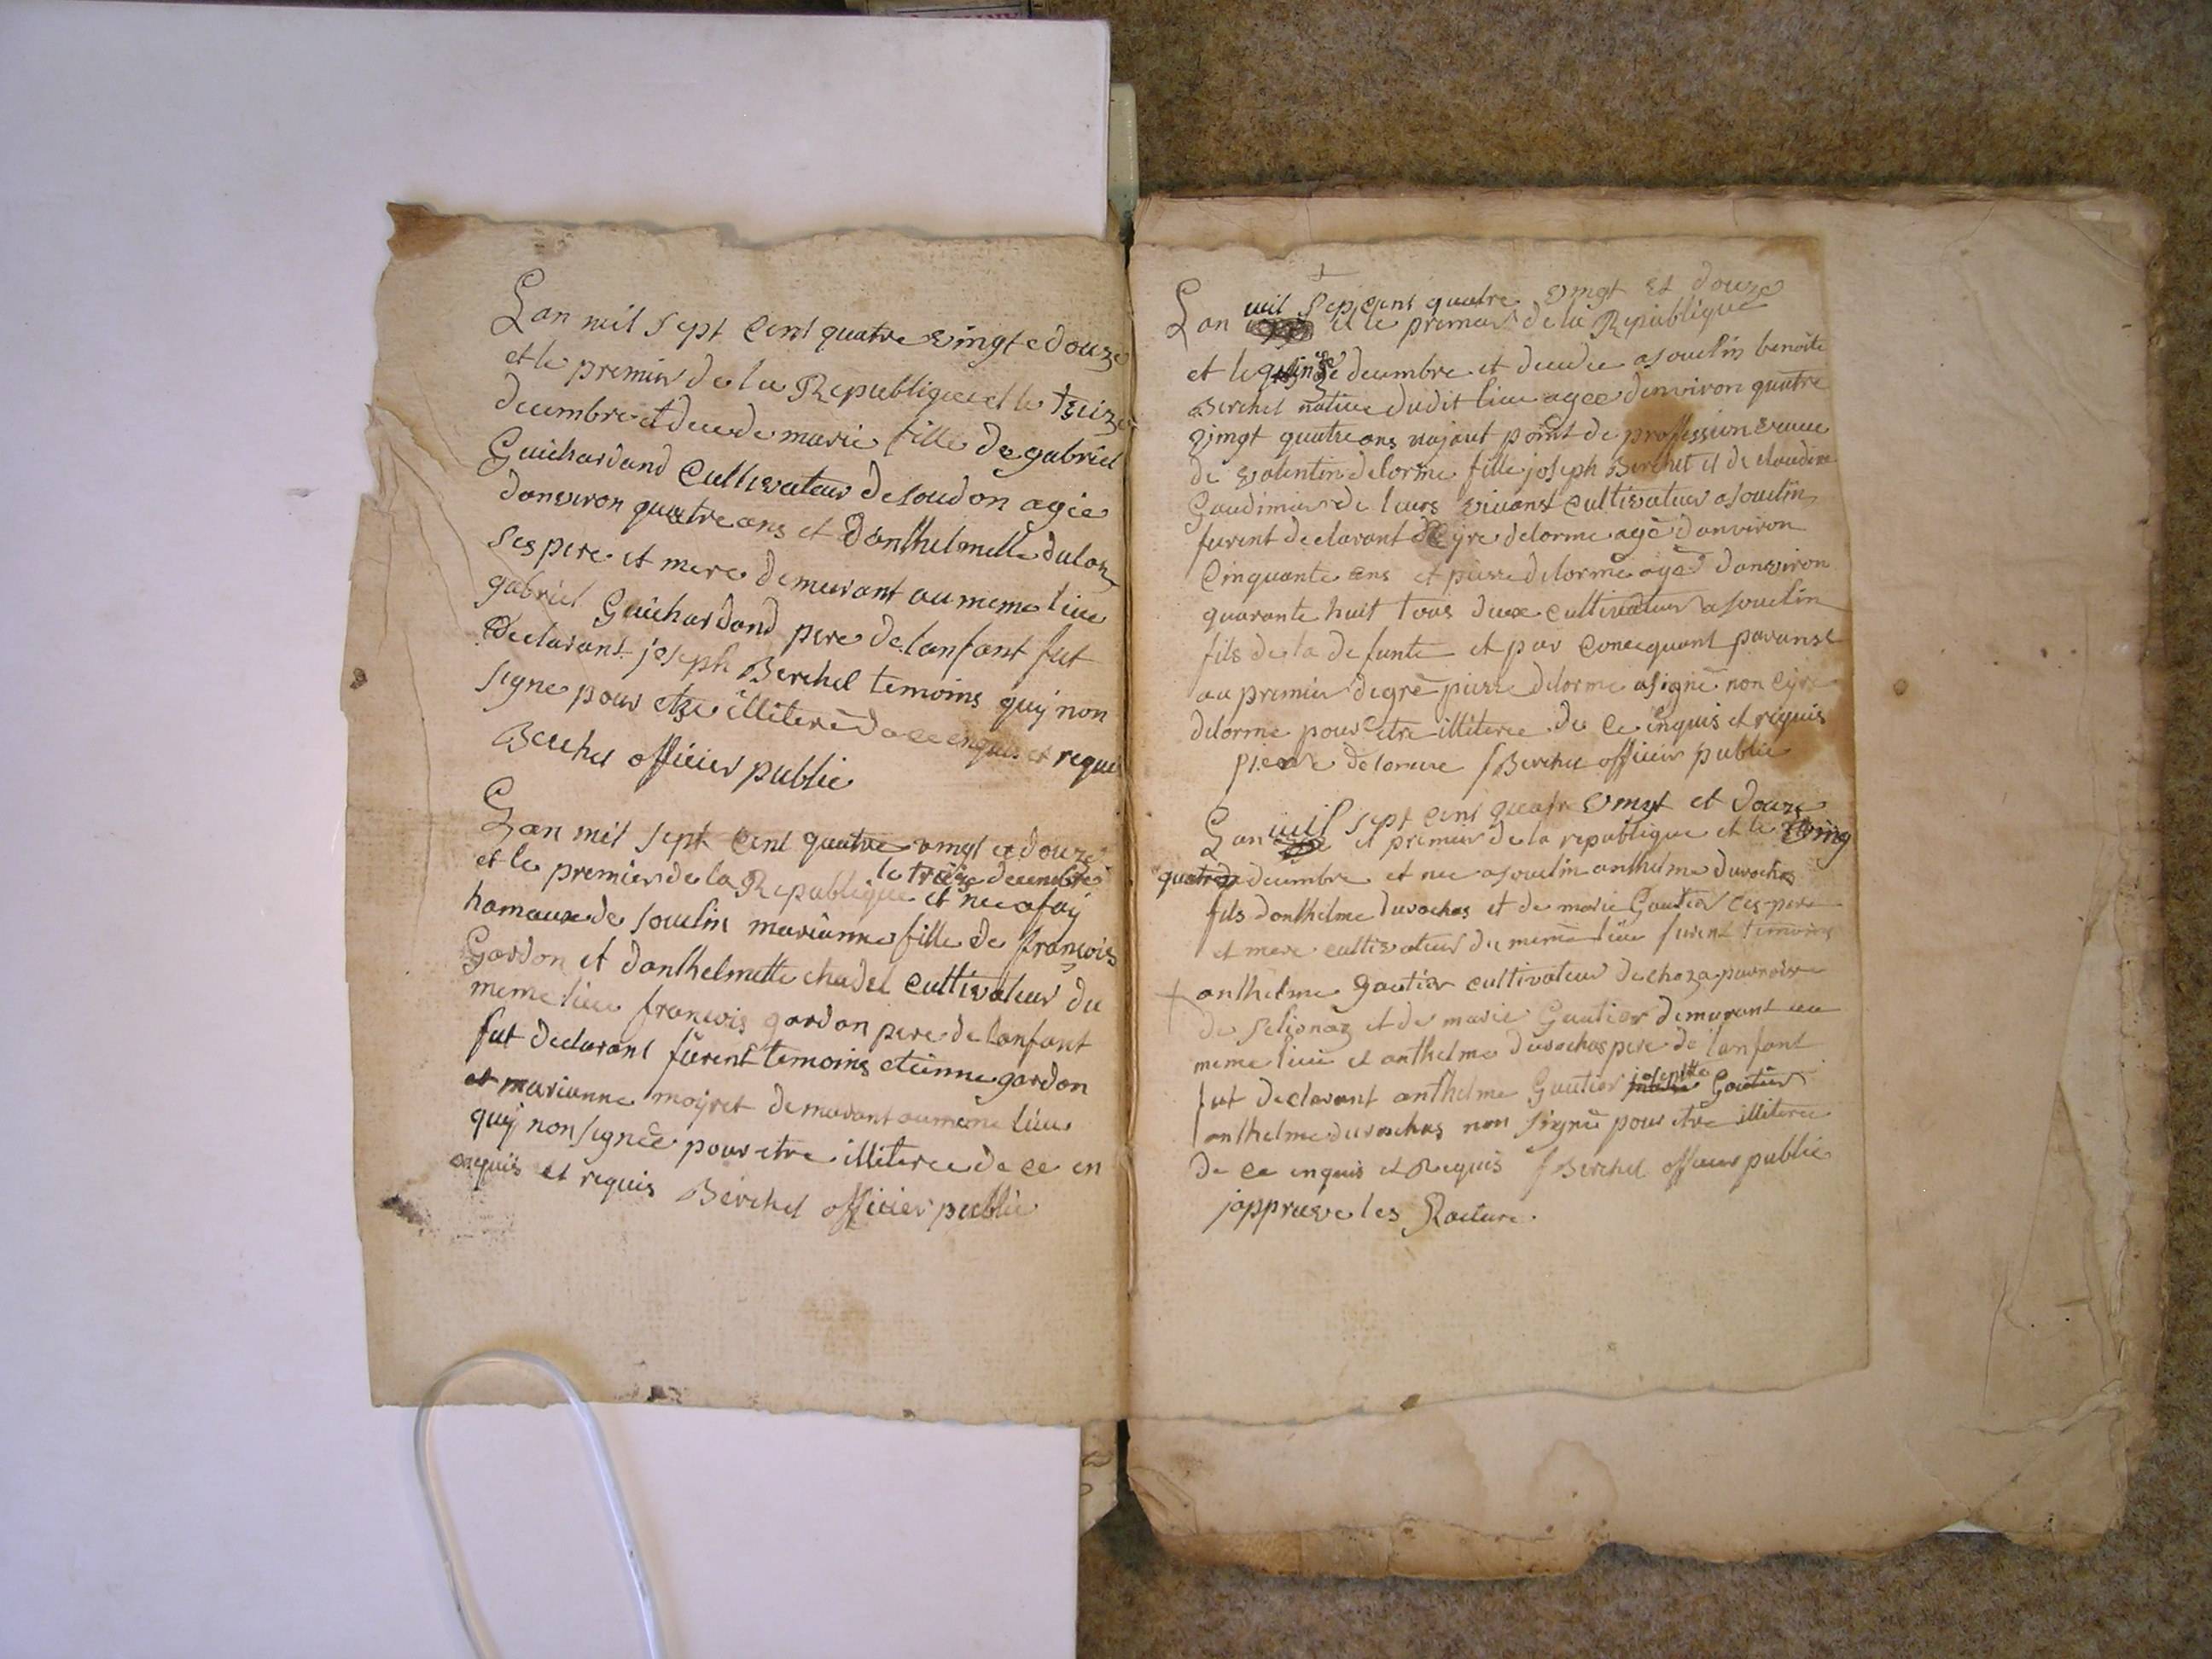 Lan mil sept Cent quatre vingt e douze
et le premier de la Republique et le treize
decembre et decede marie fille de gabriel
Guichardand Cultivateur de soudon agée
danviron quatre ans et danthelmette dulon
ses pere et mere demeurant au meme lieu
gabriel Guichardand pere de lanfant fut
declarant joseph Berchet temoins quy non
signe pour etre illiteré de ce enquis et requi
Berchet officier public
Lan mil sept Cent quatre vingt et douze
le treize decembre
et le premier de la Republique et ne a fay
hamaux de soulin marianne fille de françois
Gardon et danthelmette chadel Cultivateur du
meme lieu francois gardon pere de lanfant
fut declarant furent temoins etienne gardon
et marianne moyret demeurant au meme lieu
quy non signée pour etre illiteree de ce en
enquis et requis Berchet officier public
mil sept Cent quatre vingt et douze
Lan et le premier de la Republique
et le quinze decembre et decedee a souclin benoite
Berchet native dudit lieu agee denviron quatre
vingt quatre ans najant point de proffession veuve
de valentin delorme fille joseph Berchet et de claudine
Gaudimier de leurs vivant Cultivateur a souclin
furent declarant Cyre delorme agé danviron
Cinquante ans et pierre delorme agé danviron
quarante huit tous deux cultivateur a souclin
fils de la defunte et par Conecquant paranst
au premier degré pierre delorme a signé non Cyre
delorme pour etre illiteree de Ce enquis et requis
pierre delorme / Berchet officier public
mil sept Cent quatre vingt et douze
Lan et premier de la republique et le ving
quatre decembre et ne a souclin anthelme durochas
fils danthelme durochas et de marie Gautier ces pere
et mere cultivateur du meme lieu furent temoins
anthelme gautier cultivateur de choza parroisse
de selignaz et de marie Gautier demurant au
meme lieu et anthelme durochas pere de lanfant
josephte
fut declarant anthelme Gautier Gautier
anthelme durochas non signé pour etre illiteree
de ce enquis et Requis / Berchet officier public
japprueve les Rature.